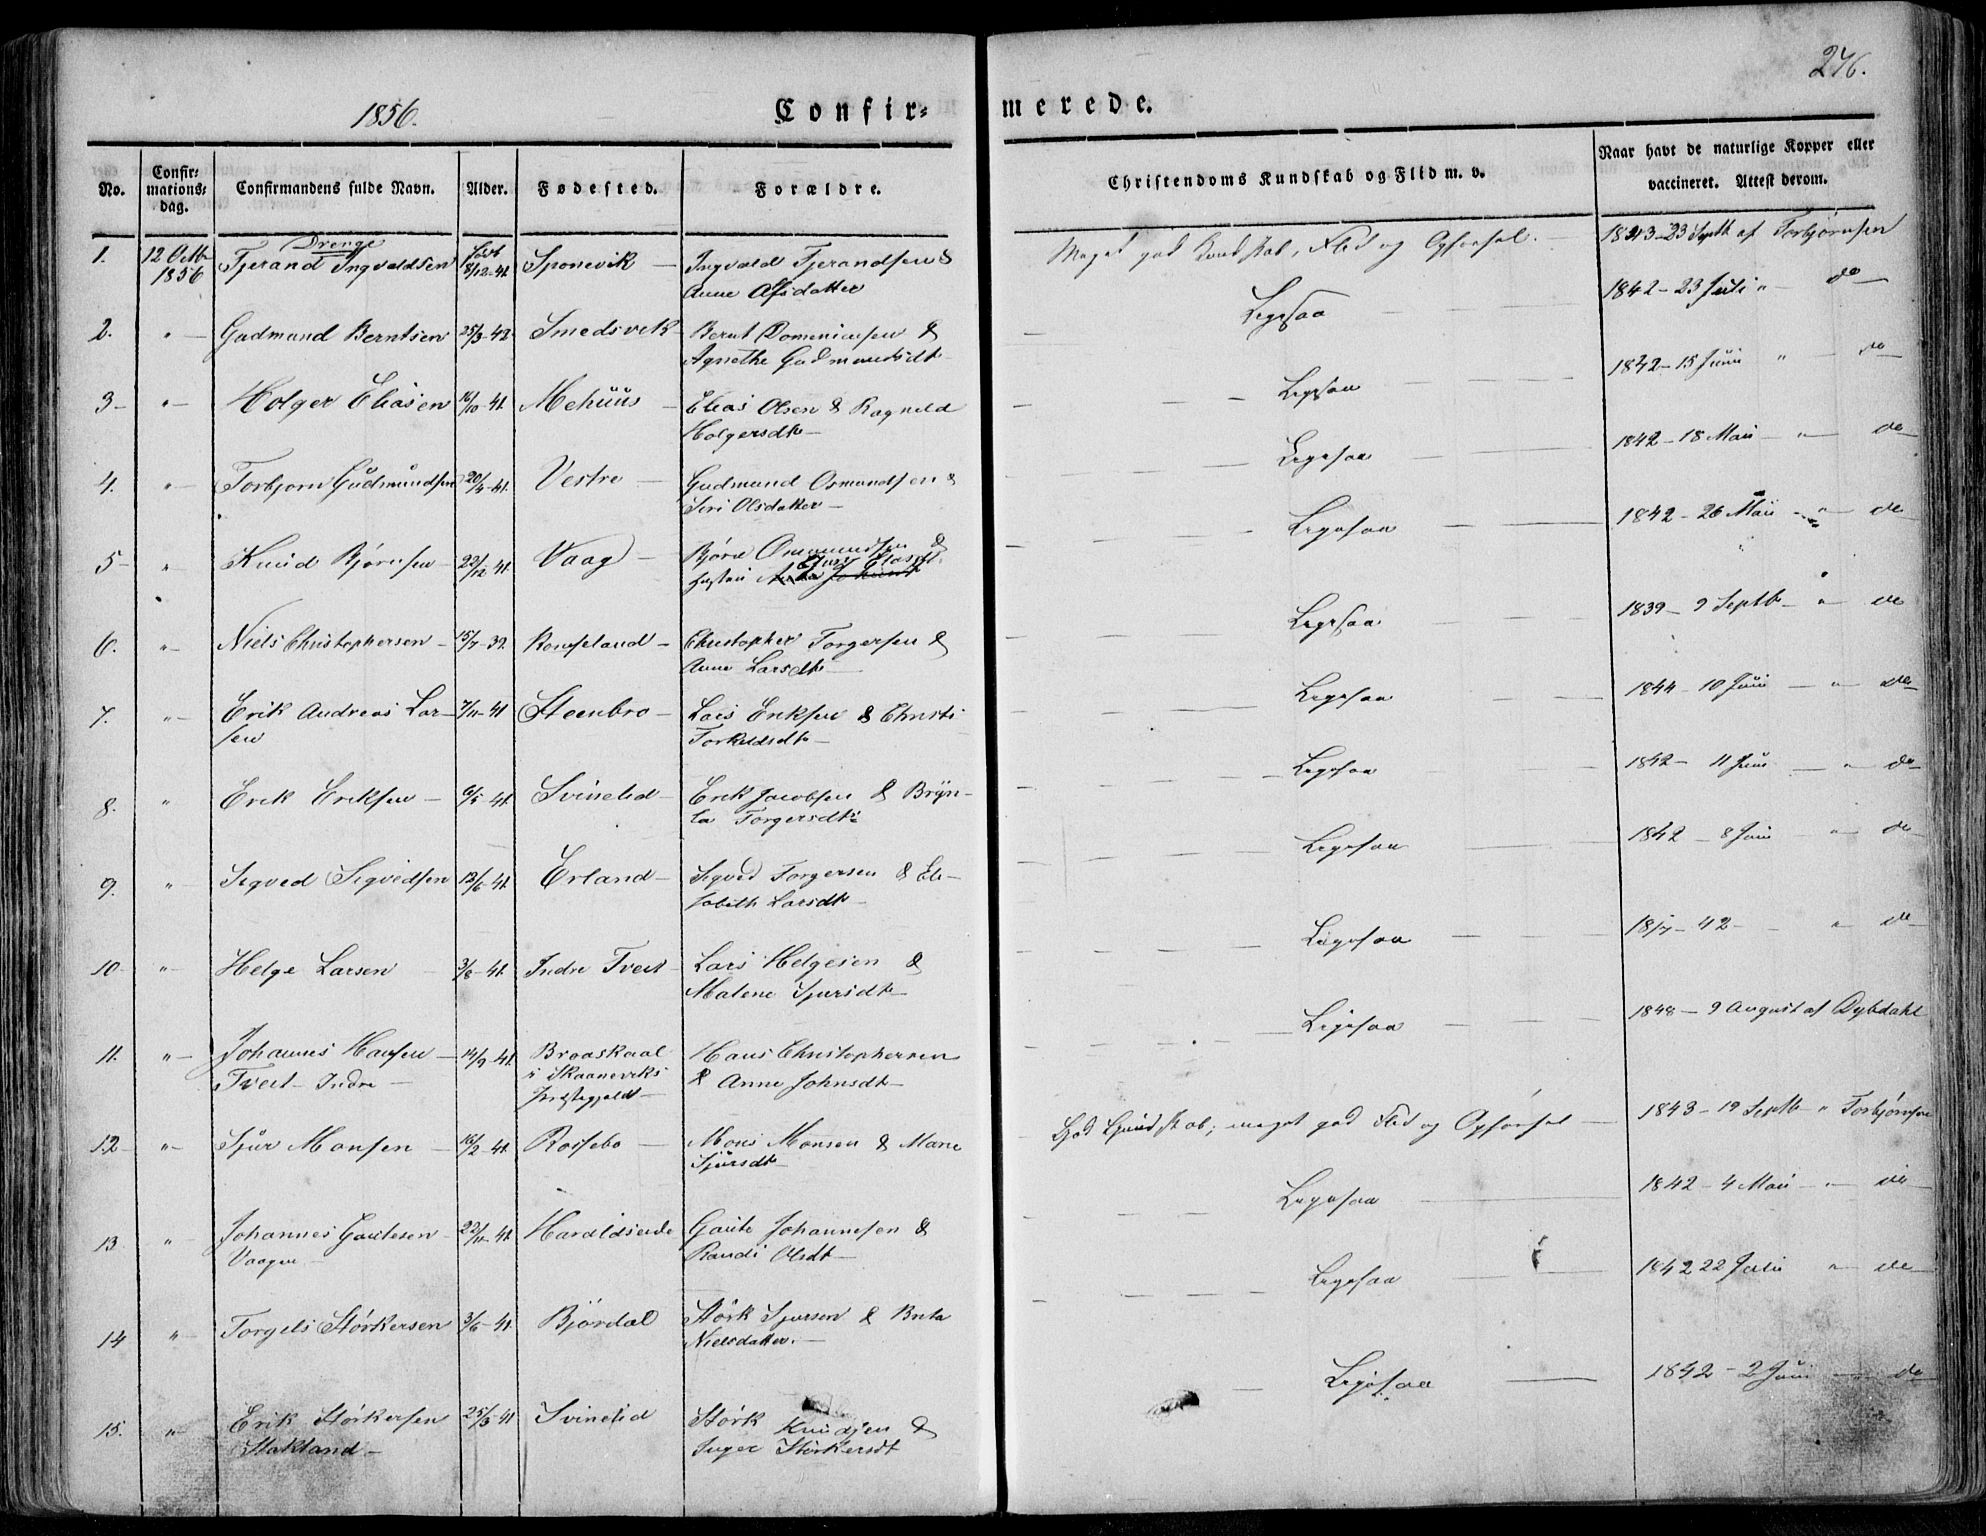 246.
1856.
Confir=
merede.
No.
Confir=
mations=
dag.
Confirmandens fulde Navn.
Alder.
Fødested.
Forældre.
Christendoms Kundskab og Flid m. v.
Naar havt de naturlige Kopper eller
vaccineret. Attest derom.
Drenge
1. 12 Octb 1856 Tjerand Ingvaldsen født 8/12-41. Sponevik — Ingvald Tjerandsen &
Anne Olsdatter
Meget god Kundskab, Flid og Opførsel. — 1843-23 Septb af Torbjørnsen
2. " — Gudmand Berntsen 25/3-42. Smedsvik — Bernt &
Agnethe
Ligesaa 1842-23 Juli " — do
3 — " — Holger Eliasen 16/10-41. Mehüüs — Elias Olsen & Ragnild
Holgersdtr —
Ligesaa 1842-15 Juni " — do
4. " — Torbjørn Güdmündsen 20/4-41. Vestre — Gudmund Osmundsen &
Siri Olsdatter —
Ligesaa 1842-18 Mai — " — do
5 — " Knüd Bjørnsen — 22/12-41. Vaag — Bjørn &
Hustru
Ligesaa 1842-26 Mai — " — do
6. " — Niels Christophersen — 15/7-39. — Christopher Torgersen &
Anne Larsdtr —
Ligesaa 1839-9 Septb — " do
7. " — Erik Andreas Lar-
sen 7/11-41 Steenbro — Lars Eriksen & Christi
Torkildsdtr —
Ligesaa 1844-10 Juni — " — do
8. " Erik Eriksen — 6/5-41. Svinelid — Erik Jacobsen & Bryn-
la Torgersdtr
Ligesaa 1842-11 Juni — " — do
9. " Sigved Sigvedsen 12/6-41. Erland — Sigved Torgersen & Eli-
sabeth Larsdtr —
Ligesaa 1842-8 Juni — " — do
10 — " — Helge Larsen — 3/8-41. Indre Tveit — Lars Helgesen &
Malene Sjursdtr —
Ligesaa 18/7-42 — " do
11. " — Johannes Hansen —
Tveit Indre — 14/9-41. Braaskaal
i Skaaneviks
Præstegjeld — Hans Christophersen
& Anne Johnsdtr —
Ligesaa 1848-9 August af Dybdahl
12 — " — Sjür Monsen — 16/2-41. Rossebo — Mons Monsen & Marie
Sjürsdtr
God Kundskab; meget god Flid og Opførsel — 1843-19 Septb " Torbjørnsen
13 " — Johannes Gautesen —
Vaagen — 22/11-41. Haraldseide Gaute Johannesen &
Randi Olsdtr —
Ligesaa 1842-4 Mai — " — do
14 " — Torgils Størkersen 3/6-41. Bjørdal Størk Sjursen & Brita
Nielsdatter. —
Ligesaa 1842 22 Juli " — do
15. " — Erik Størkersen
Stakland — 25/3-41 Svinelid Størk Knudsen &
Inger Størkersdt
Ligesaa 1842-2 Juni — do